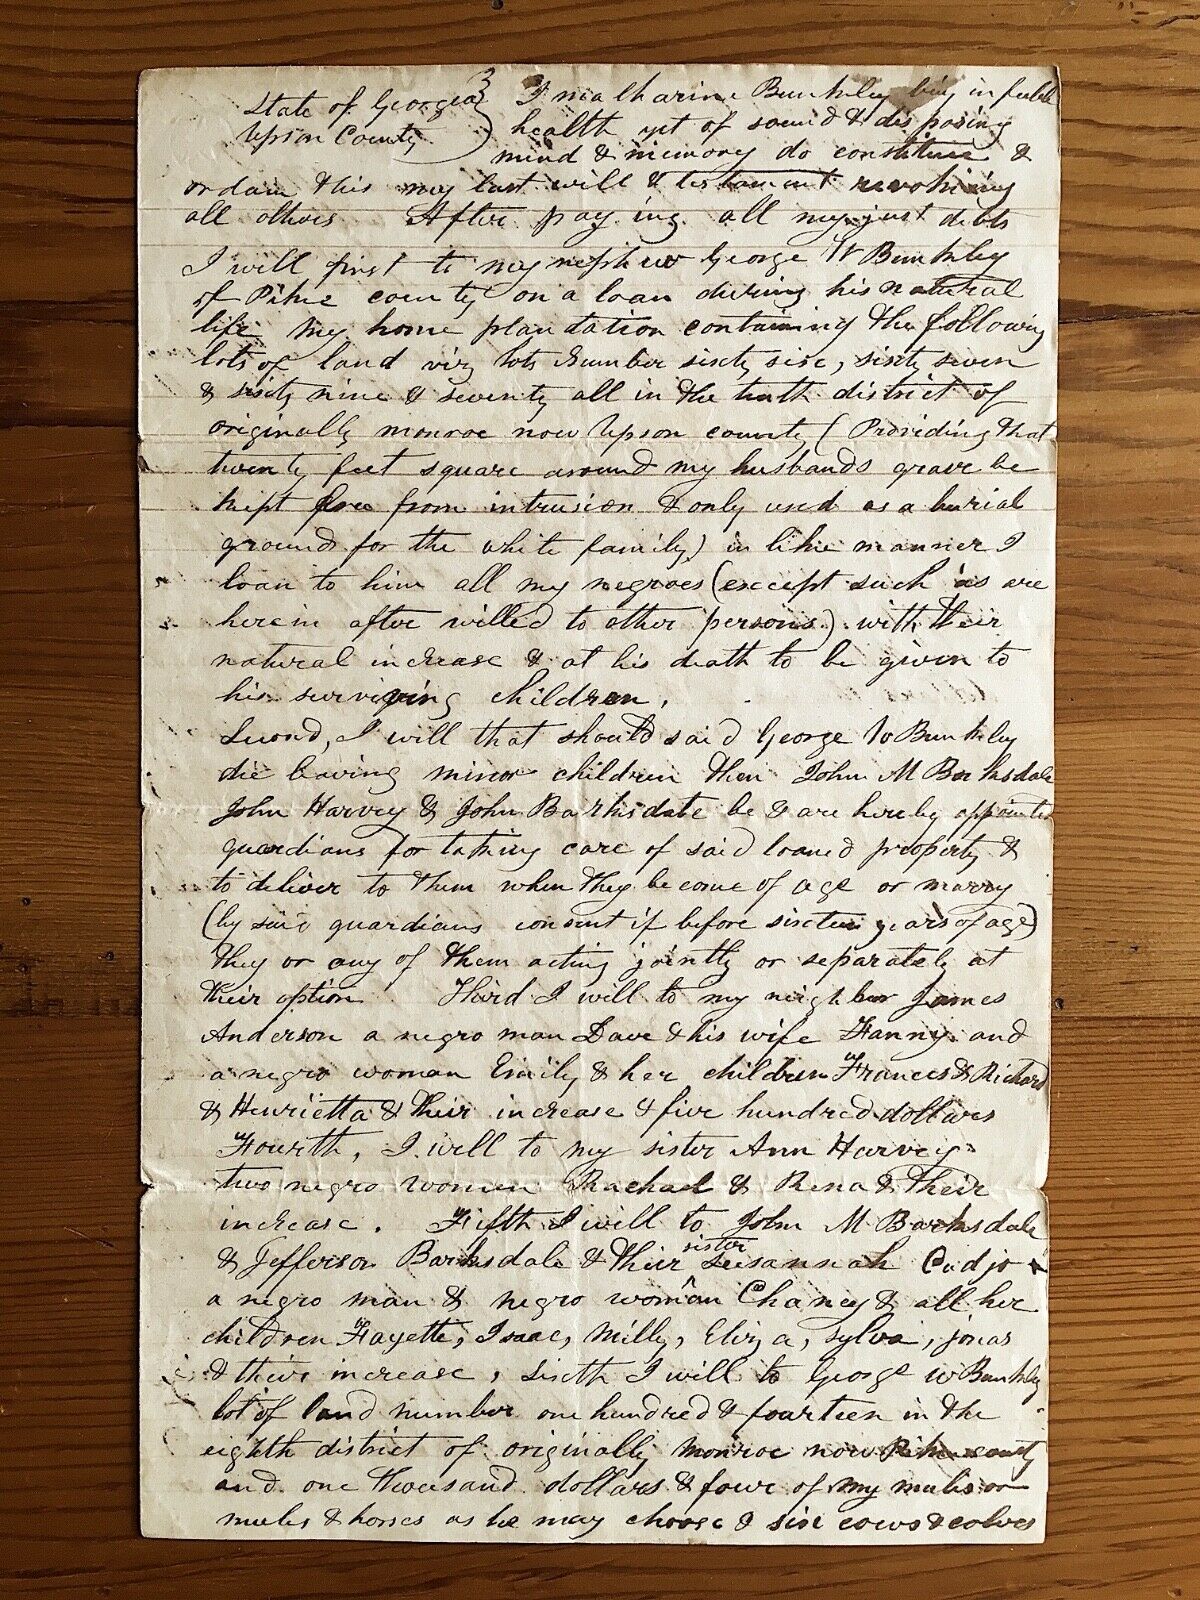 State of Georgia } I Malharine Bunkley being in feeble
Upson County } health yet of sound & disposing
mind & memory do constitute &
ordain this my last will & testament revoking
all others After paying all my just debts
I will first to my nephew George W Bunkley
of Pike county on a loan during his natural
life my home plandtation containing the following
lots of land viz lots number sixty six, sixty seven
& sixty nine & seventy all in the tenth district of
originally monroe now Upson county (Providing that
twenty feet square around my husbands grave be
kept free from intrusion & only used as a burial
ground for the white family) in like manner I
loan to him all my negroes (except such as are
herein after willed to other persons) with their
natural increase & at his death to be given to
his surviving children.
Second, I will that should said George W Bunkley
die leaving minor children then John M Barksdale
John Harvey & John Barksdale be & are hereby appointed
guardians for taking care of said loaned property &
to deliver to them when they become of age or marry
(by said guardians consent if before sixteen years of age)
they or any of them acting jointly or separately at
their option. Third I will to my neighbor James
Anderson a negro man Dave & his wife Fanny and
a negro woman Emily & her children Frances & Richard
& Henrietta & their increase & five hundred dollars
Fourth, I will to my sister Ann Harvey
two negro women Rachael & Rena & their
increase. Fifth I will to John M Barksdale
& Jefferson Barksdale & their sister Susannah Cudjo
a negro man & negro woman Chaney & all her
children Fayette, Isaac, Milly, Eliza, Sylva, jonas
& their increase, Sixth I will to George W Bunkley
lot of land number one hundred & fourteen in the
eighth district of originally Monroe now Pike county
and one thousand dollars & four of my mules or
mules & horses as he may choose & six cows & calves